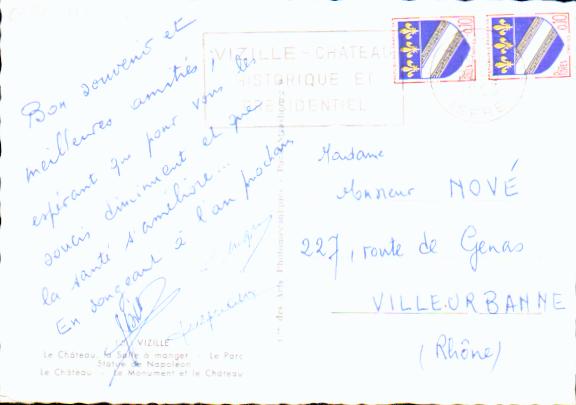 Bon souvenir et
meilleures amitiés,
espérant que pour vous les
soucis diminuent et que
la santé s'améliore...
En songeant à l'an prochain
VIZILLE
Le Château, la Salle à manger - Le Parc
Statue de Napoléon
Le Château - Le Monument et le Château
VIZILLE - CHATEAU
HISTORIQUE ET
PRESIDENTIEL
0,10
Postes
0,10
Postes
ISERE
des Arts
Madame
Monsieur NOVÉ
227, route de Genas
VILLEURBANNE
(Rhône)